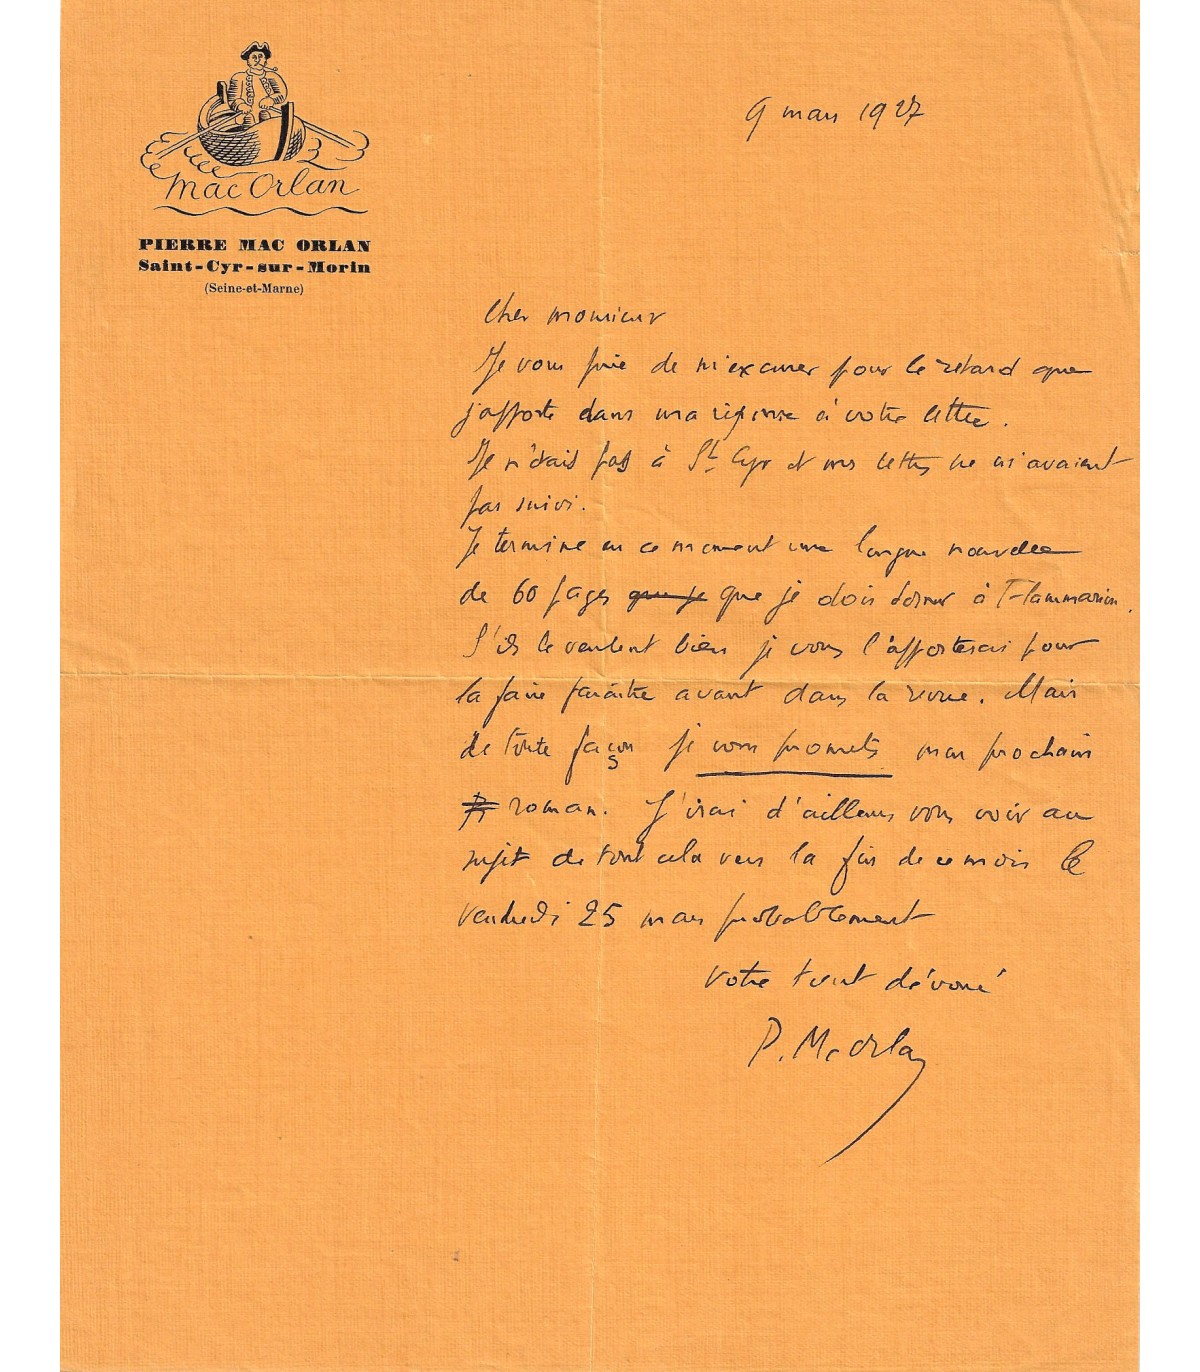 mac Orlan
PIERRE MAC ORLAN
Saint-Cyr-sur-Morin
(Seine-et-Marne)
9 mars 1927
Cher monsieur
Je vous prie de m'excuser pour le retard que
j'apporte dans ma réponse à votre lettre.
Je n'étais pas à St Cyr et mes lettres ne m'avaient
pas suivi.
Je termine en ce moment une longue nouvelle
de 60 pages que je que je dois donner à Flammarion.
S'ils le veulent bien je vous l'apporterai pour
la faire paraître avant dans la revue. Mais
de toute façon je vous promets mon prochain
roman. J'irai d'ailleurs vous voir au
sujet de tout cela vers la fin de ce mois le
vendredi 25 mars probablement
votre tout dévoué
P. Mac Orlan